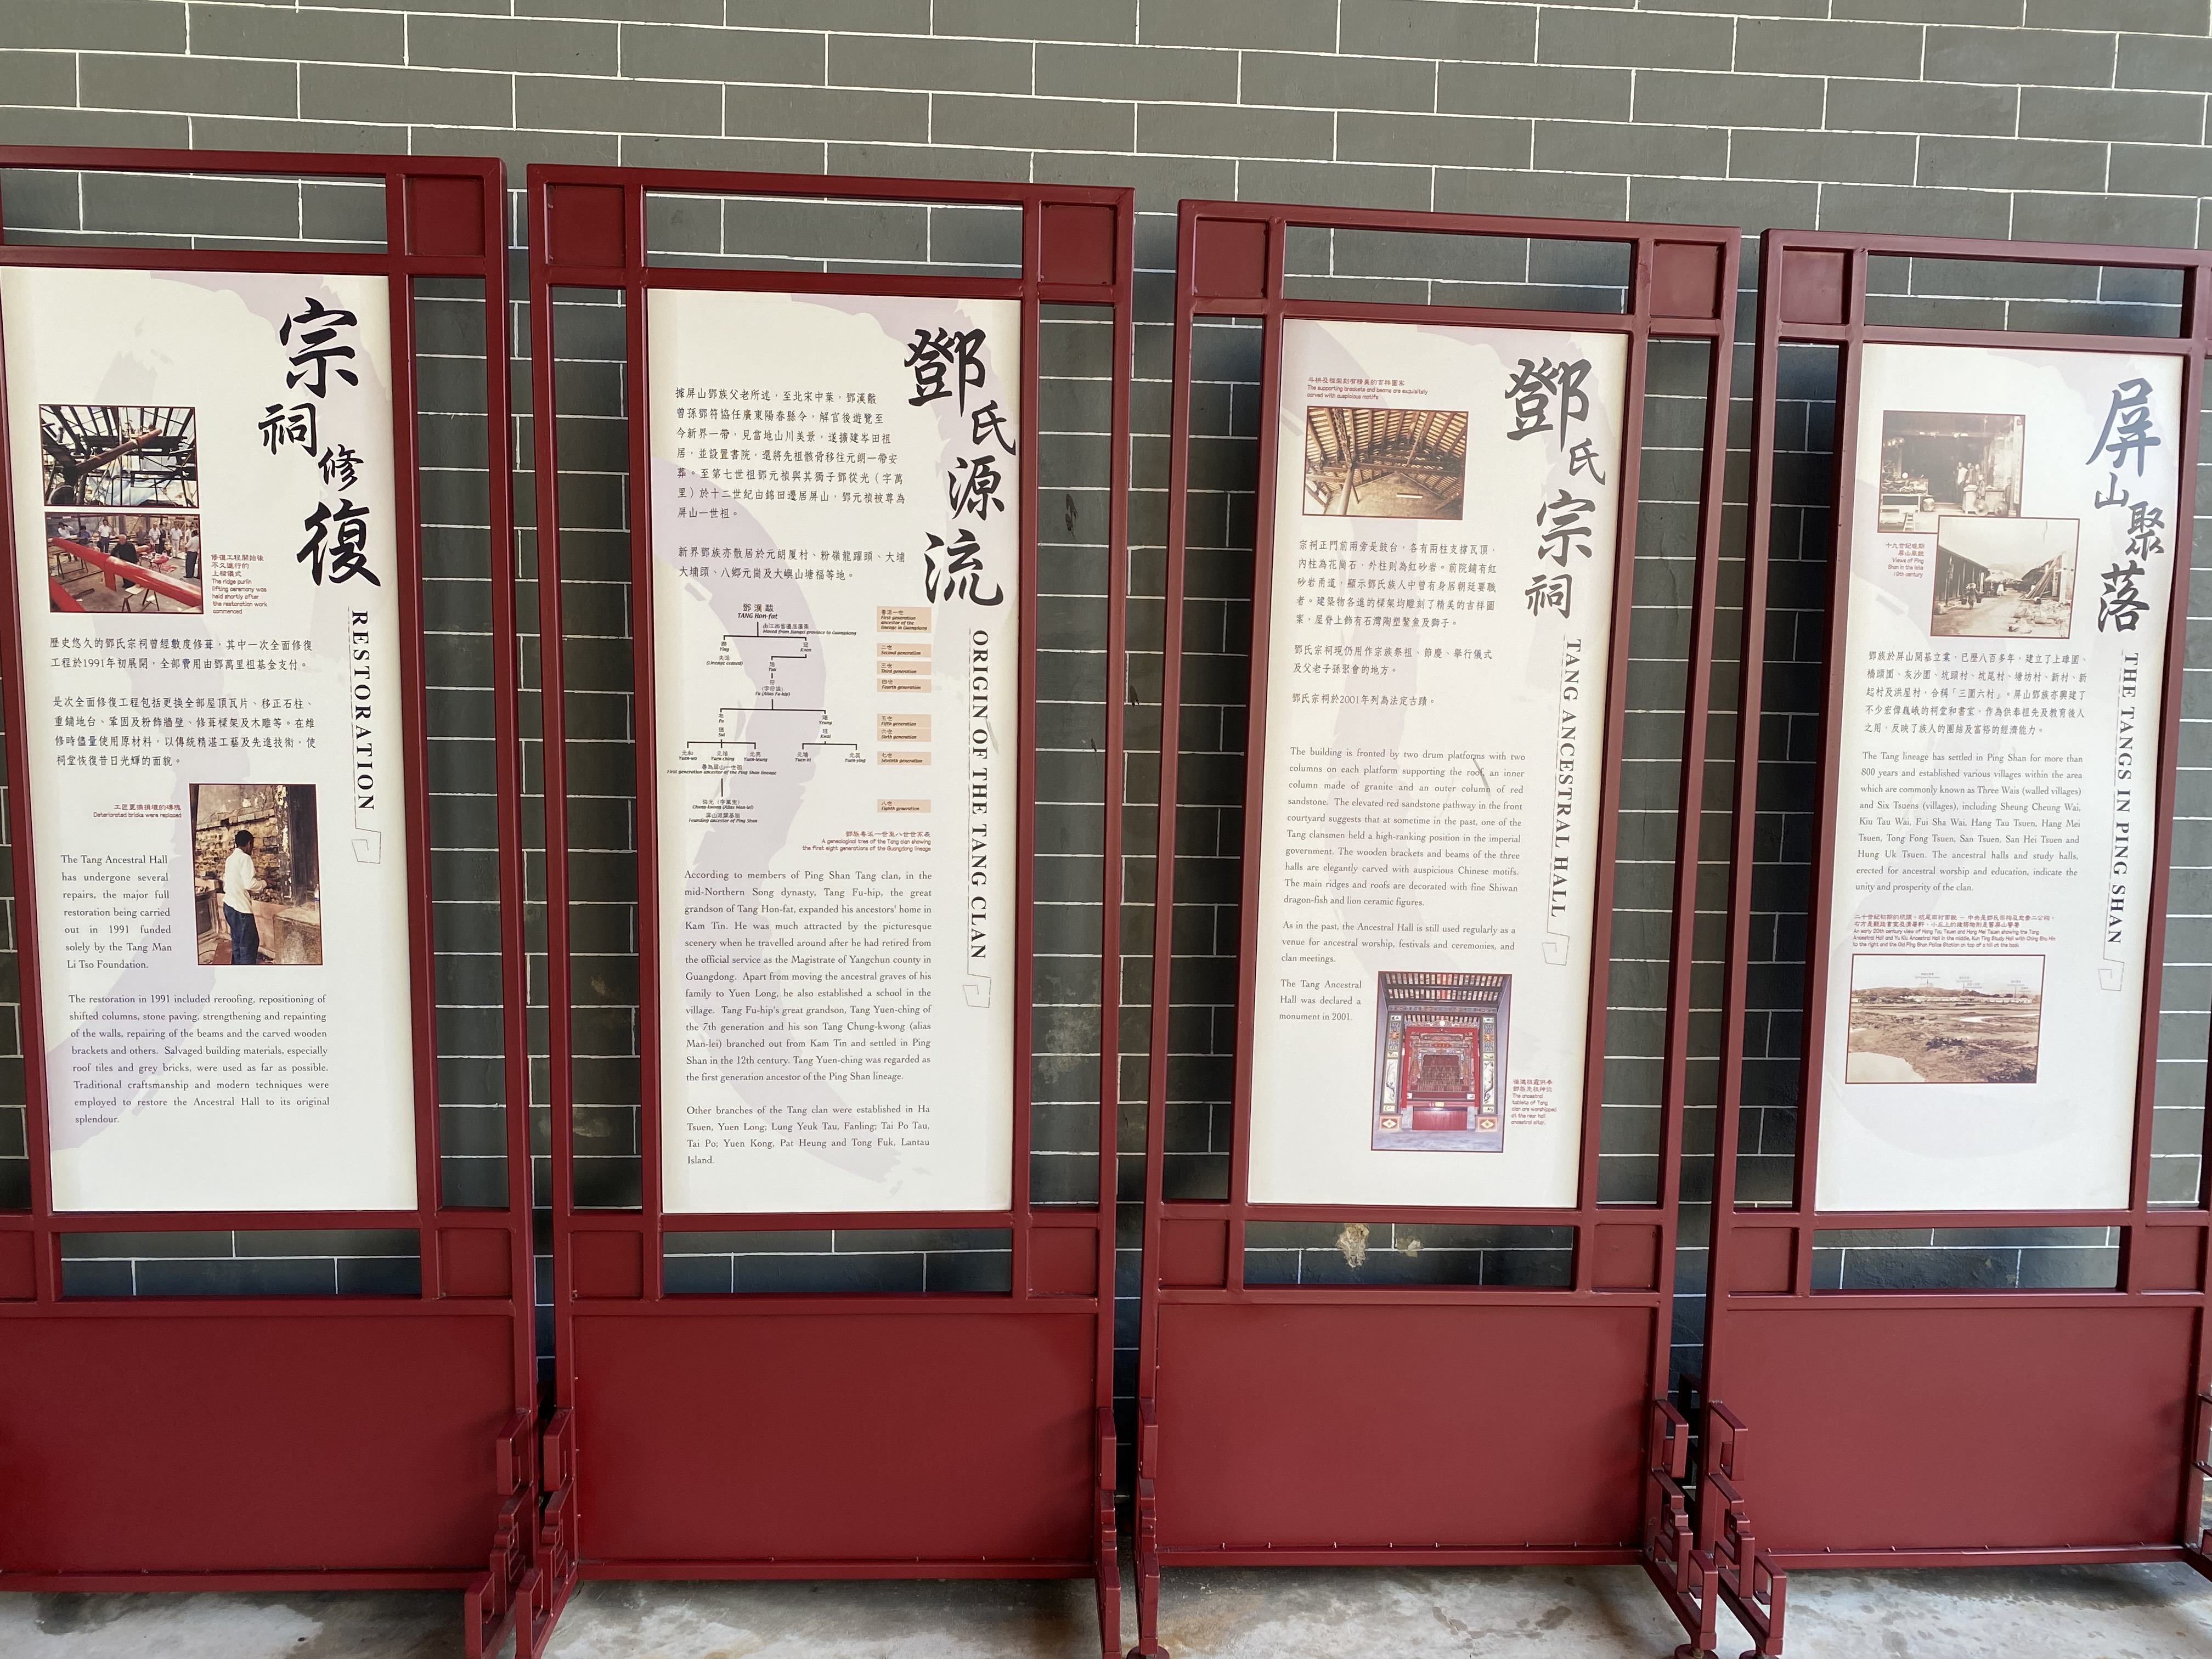 宗祠修復
RESTORATION
修復工程開始後
不久進行的
上樑儀式
The ridge purlin
lifting ceremony was
held shortly after
the restoration work
commenced
歷史悠久的鄧氏宗祠曾經數度修葺，其中一次全面修復
工程於1991年初展開，全部費用由鄧萬里祖基金支付。
是次全面修復工程包括更換全部屋頂瓦片、移正石柱、
重鋪地台、鞏固及粉飾牆壁、修葺樑架及木雕等。在維
修時儘量使用原材料，以傳統精湛工藝及先進技術，使
祠堂恢復昔日光輝的面貌。
工匠置換損壞的磚塊
Deteriorated bricks were replaced
The Tang Ancestral Hall
has undergone several
repairs, the major full
restoration being carried
out in 1991 funded
solely by the Tang Man
Li Tso Foundation.
The restoration in 1991 included reroofing, repositioning of
shifted columns, stone paving, strengthening and repainting
of the walls, repairing of the beams and the carved wooden
brackets and others. Salvaged building materials, especially
roof tiles and grey bricks, were used as far as possible.
Traditional craftsmanship and modern techniques were
employed to restore the Ancestral Hall to its original
splendour.
鄧氏源流
ORIGIN OF THE TANG CLAN
據屏山鄧族父老所述，至北宋中葉，鄧漢黻
曾孫鄧符協任廣東陽春縣令，解官後遊覽至
今新界一帶，見當地山川美景，遂擴建岑田祖
居，並設置書院，還將先祖骸骨移往元朗一帶安
葬。至第七世祖鄧元禎與其獨子鄧從光（字萬
里）於十二世紀由錦田遷居屏山，鄧元禎被尊為
屏山一世祖。
新界鄧族亦散居於元朗厦村、粉嶺龍躍頭、大埔
大埔頭、八鄉元崗及大嶼山塘福等地。
鄧漢黻
TANG Hon-fat
由江西省遷居廣東
Moved from Jiangxi province to Guangdong
粵派一世
First generation
ancestor of the
lineage in Guangdong
Ying
Koon
二世
Second generation
失派
(Lineage ceased)
旭
Yuk
三世
Third generation
符
(字符協)
Fu (Alias Fu-hip)
四世
Fourth generation
布
Po
Young
五世
Fifth generation
Sui
Kwai
六世
Sixth generation
元和
Yuen-wo
元禎
Yuen-ching
元亮
Yuen-leung
Yuen-hi
Yuen-ying
七世
Seventh generation
尊為屏山一世祖
First generation ancestor of the Ping Shan lineage
從光（字萬里）
Chung-kwong (Alias Man-lei)
屏山派開基祖
Founding ancestor of Ping Shan
八世
Eighth generation
鄧族粵派一世至八世世系表
A genealogical tree of the Tang clan showing
the first eight generations of the Guangdong lineage
According to members of Ping Shan Tang clan, in the
mid-Northern Song dynasty, Tang Fu-hip, the great
grandson of Tang Hon-fat, expanded his ancestors' home in
Kam Tin. He was much attracted by the picturesque
scenery when he travelled around after he had retired from
the official service as the Magistrate of Yangchun county in
Guangdong. Apart from moving the ancestral graves of his
family to Yuen Long, he also established a school in the
village. Tang Fu-hip's great grandson, Tang Yuen-ching of
the 7th generation and his son Tang Chung-kwong (alias
Man-lei) branched out from Kam Tin and settled in Ping
Shan in the 12th century. Tang Yuen-ching was regarded as
the first generation ancestor of the Ping Shan lineage.
Other branches of the Tang clan were established in Ha
Tsuen, Yuen Long; Lung Yeuk Tau, Fanling; Tai Po Tau,
Tai Po; Yuen Kong, Pat Heung and Tong Fuk, Lantau
Island.
鄧氏宗祠
TANG ANCESTRAL HALL
斗栱及樑架刻有精美的吉祥圖案
The supporting brackets and beams are exquisitely
carved with auspicious motifs
宗祠正門前兩旁是鼓台，各有兩柱支撐瓦頂，
內柱為花崗石，外柱則為紅砂岩。前院鋪有紅
砂岩甬道，顯示鄧氏族人中曾有身居朝廷要職
者。建築物各進的樑架均雕刻了精美的吉祥圖
案，屋脊上飾有石灣陶塑鰲魚及獅子。
鄧氏宗祠現仍用作宗族祭祖、節慶、舉行儀式
及父老子孫聚會的地方。
鄧氏宗祠於2001年列為法定古蹟。
The building is fronted by two drum platforms with two
columns on each platform supporting the roof, an inner
column made of granite and an outer column of red
sandstone. The elevated red sandstone pathway in the front
courtyard suggests that at sometime in the past, one of the
Tang clansmen held a high-ranking position in the imperial
government. The wooden brackets and beams of the three
halls are elegantly carved with auspicious Chinese motifs.
The main ridges and roofs are decorated with fine Shiwan
dragon-fish and lion ceramic figures.
As in the past, the Ancestral Hall is still used regularly as a
venue for ancestral worship, festivals and ceremonies, and
clan meetings.
The Tang Ancestral
Hall was declared a
monument in 2001.
後進祖龕供奉
鄧族先祖神位
The ancestral
tablets of Tang
clan are worshipped
at the rear hall
ancestral altar.
屏山聚落
THE TANGS IN PING SHAN
十九世紀晚期
屏山風貌
Views of Ping
Shan in the late
19th century
鄧族於屏山開基立業，已歷八百多年，建立了上璋圍、
橋頭圍、灰沙圍、坑頭村、坑尾村、塘坊村、新村、新
起村及洪屋村，合稱「三圍六村」。屏山鄧族亦興建了
不少宏偉巍峨的祠堂和書室，作為供奉祖先及教育後人
之用，反映了族人的團結及富裕的經濟能力。
The Tang lineage has settled in Ping Shan for more than
800 years and established various villages within the area
which are commonly known as Three Wais (walled villages)
and Six Tsuens (villages), including Sheung Cheung Wai,
Kiu Tau Wai, Fui Sha Wai, Hang Tau Tsuen, Hang Mei
Tsuen, Tong Fong Tsuen, San Tsuen, San Hei Tsuen and
Hung Uk Tsuen. The ancestral halls and study halls,
erected for ancestral worship and education, indicate the
unity and prosperity of the clan.
An early 20th century view of Hang Tau Tsuen and Hang Mei Tsuen showing the Tang
Ancestral Hall and Yu Kiu Ancestral Hall in the middle, Kun Ting Study Hall with Ching Shu Hin
to the right and the Old Ping Shan Police Station on top of a hill at the back